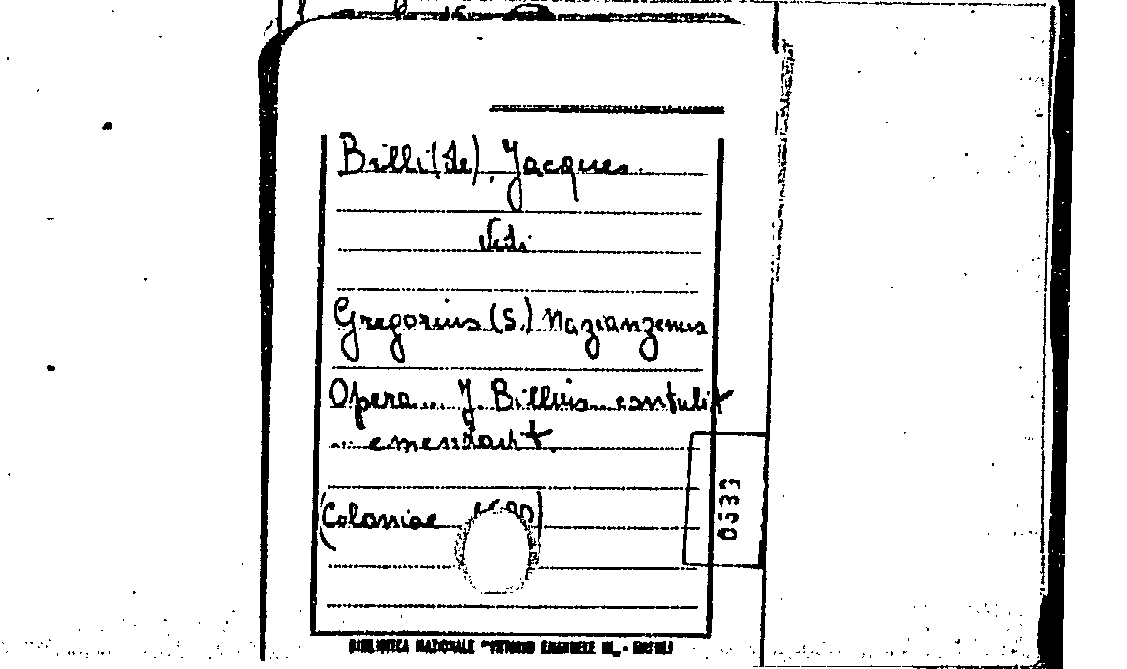 Billi (de), Jacques.
Vedi
Gregorius (S.) Nazianzenus
Opera... J. Billius contulit
... emendavit.
(Coloniae 1690)
0533
BIBLIOTECA NAZIONALE "VITTORIO EMANUELE III" - NAPOLI